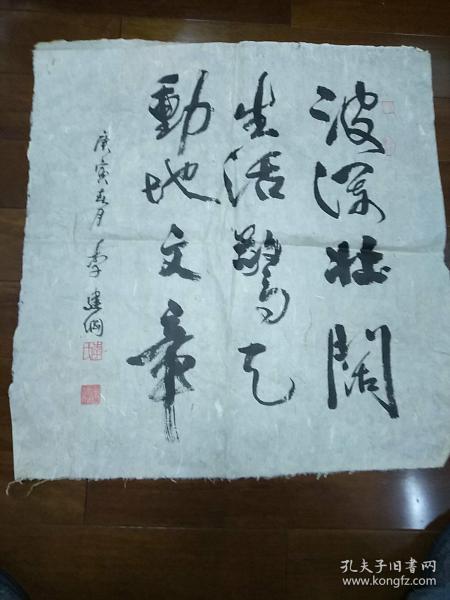 波瀾壯闊
生活驚天
動地文章
庚寅五月 李建綱
孔夫子旧书网
www.kongfz.com